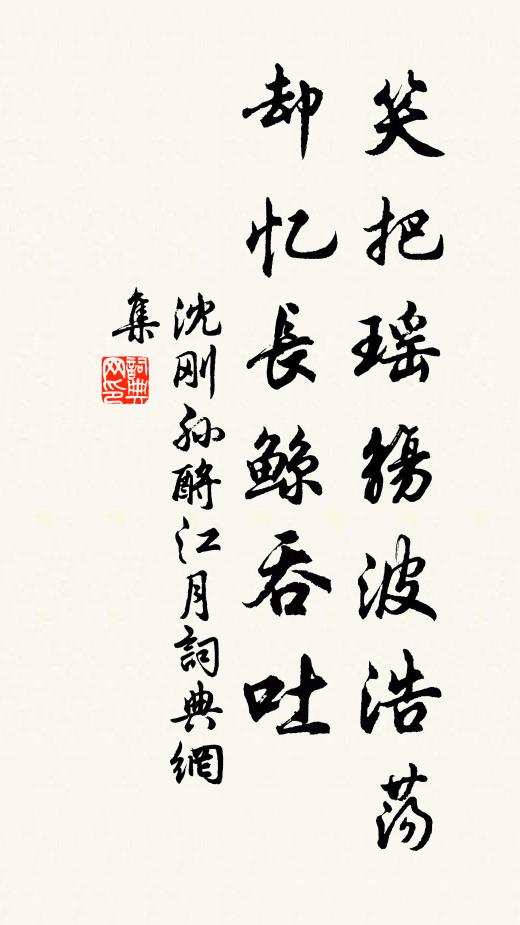 笑把瑶觞波浩荡
却忆長鲸吞吐
沈刚孙酹江月詞典網
集
詞典网印